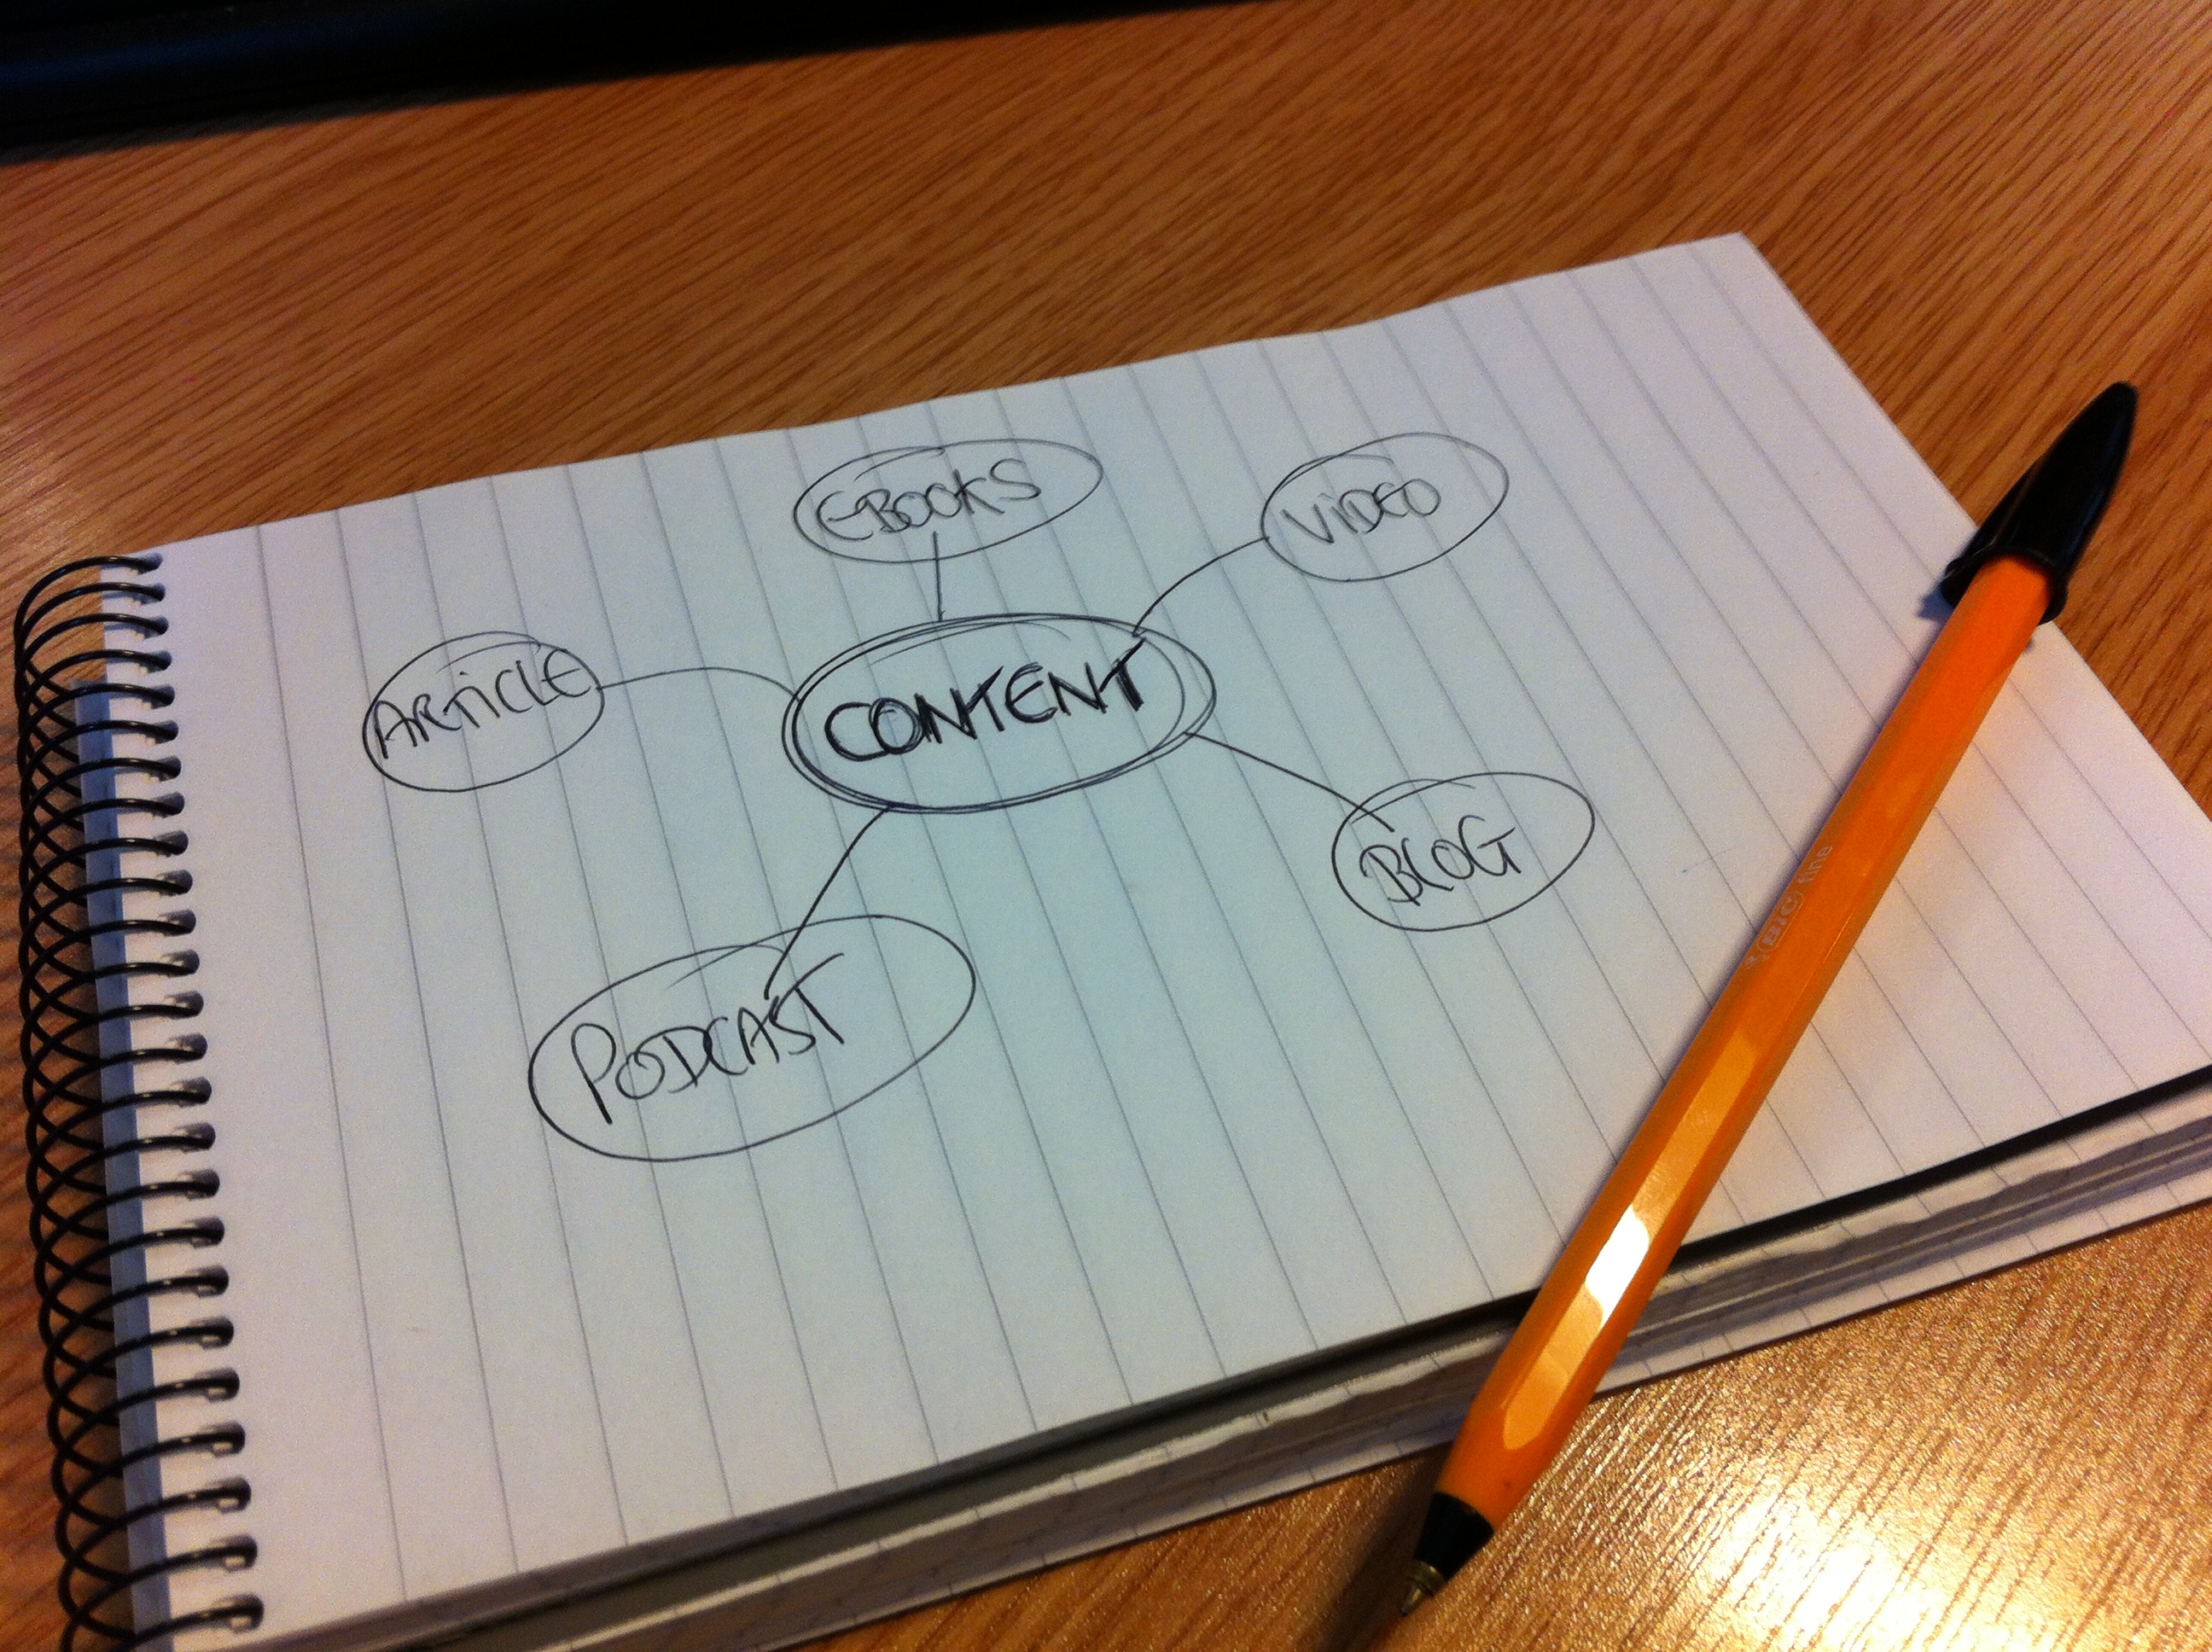 EBOOKS
VIDEO
ARTICLE
CONTENT
BLOG
PODCAST
BIC fine